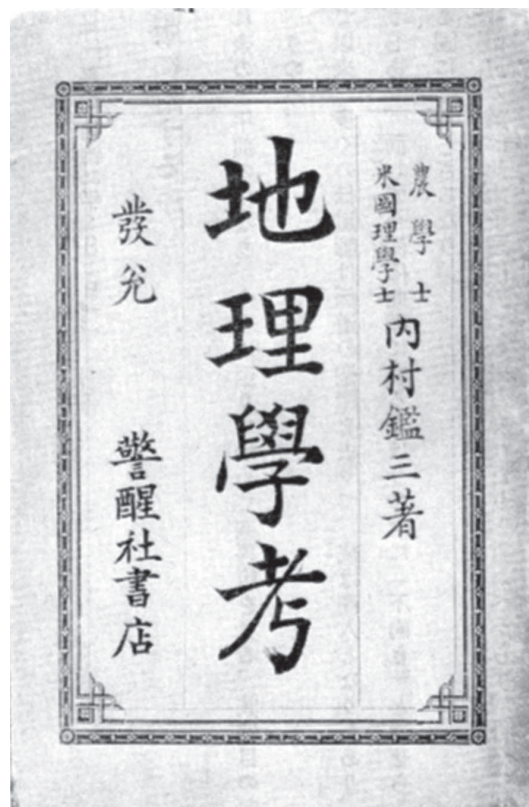 農學士
米國理學士
内村鑑三著
地理學考
發兌
警醒社書店